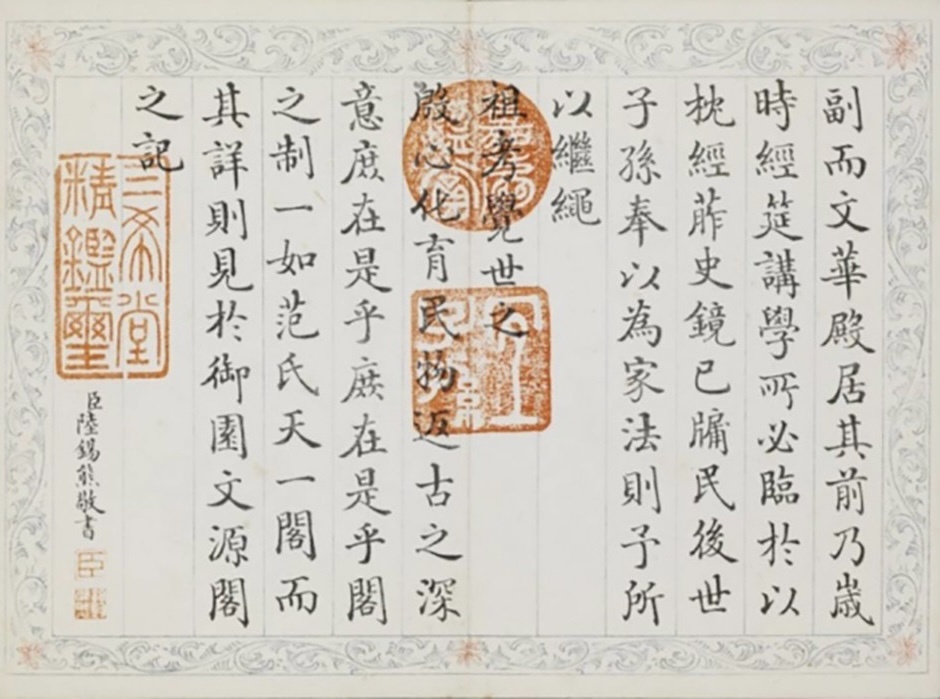 副而文華殿居其前乃嵗
時經筵講學所必臨於以
枕經葄史鏡已牖民後世
子孫奉以為家法則予所
以繼繩
祖考覺世之
殷心化育民物返古之深
意庶在是乎庶在是乎閣
之制一如范氏天一閣而
其詳則見於御園文源閣
之記
三希堂
精鑑璽
臣陸錫熊敬書
臣
宜
子孫